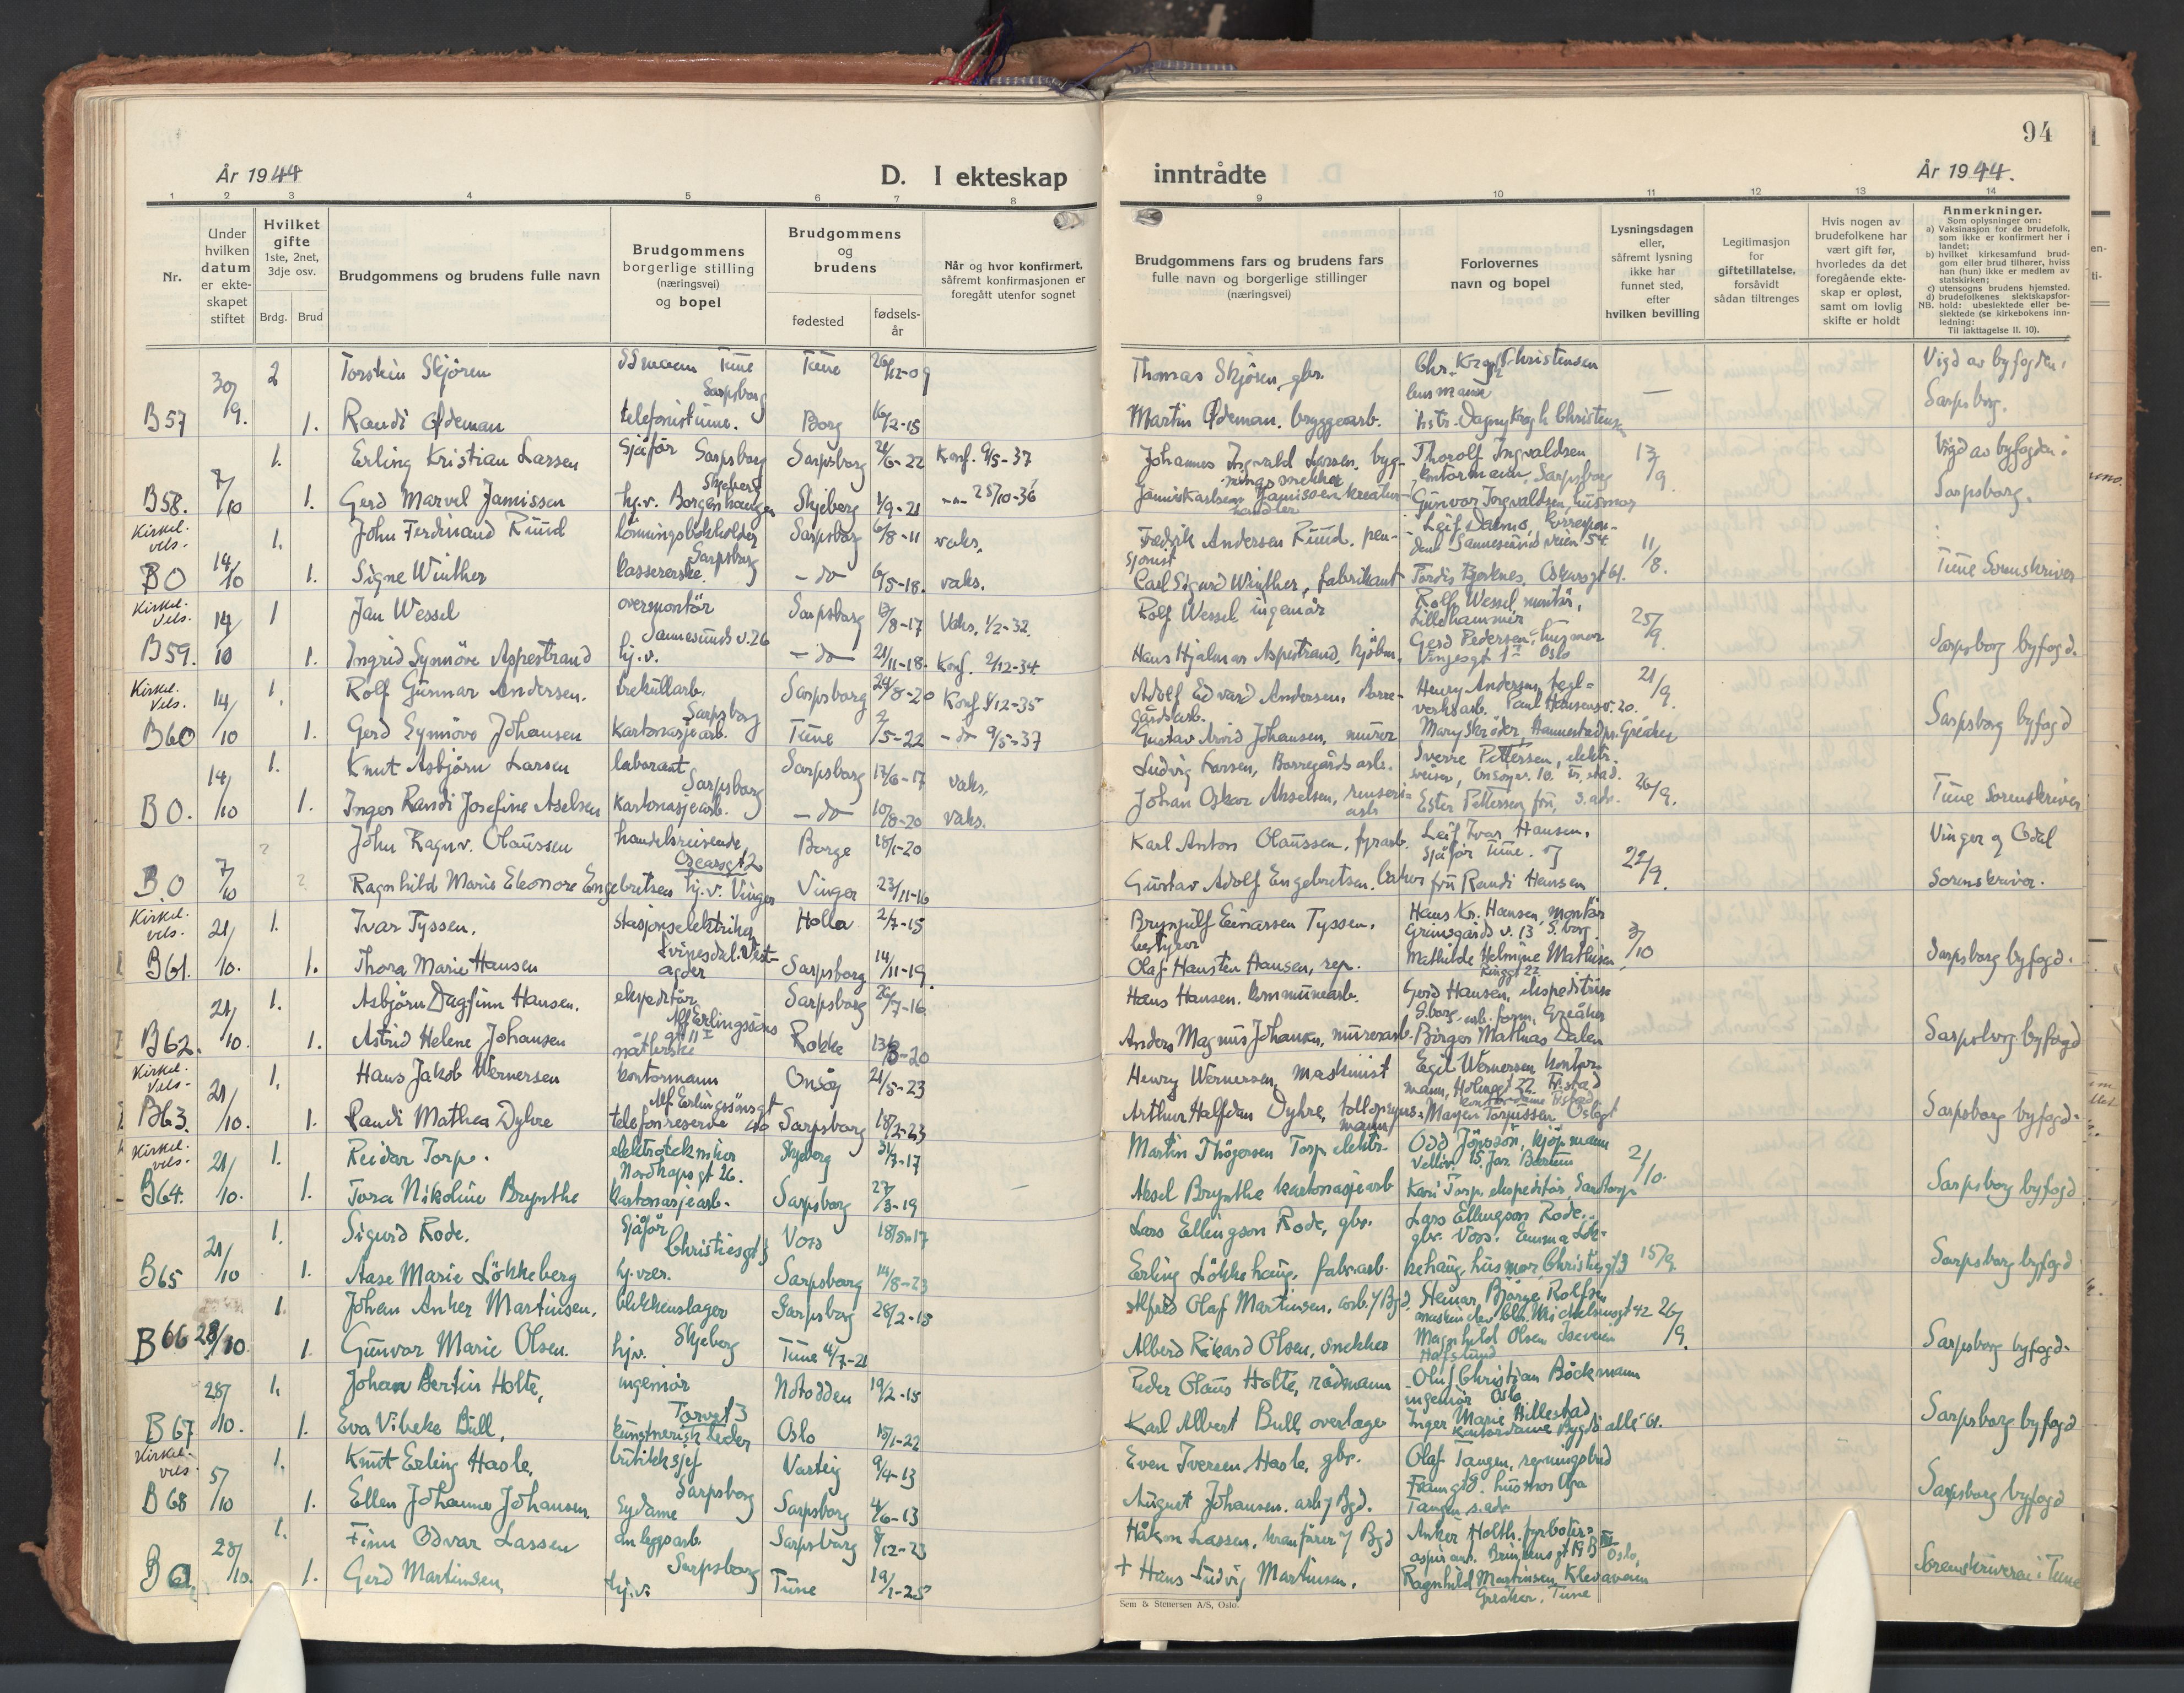 94
År 1944
D. I ekteskap
inntrådte
År 1944.
1 2 3 4 5 6 7 8 9 10 11 12 13 14
Nr.
Under hvilken datum er ekteskapet stiftet
Hvilket gifte 1ste, 2net, 3dje osv.
Brdg. Brud
Brudgommens og brudens fulle navn
Brudgommens borgerlige stilling (næringsvei) og bopel
Brudgommens og brudens
fødested
fødsels-år
Når og hvor konfirmert, såfremt konfirmasjonen er foregått utenfor sognet
Brudgommens fars og brudens fars fulle navn og borgerlige stillinger (næringsvei)
Forlovernes navn og bopel
Lysningsdagen eller, såfremt lysning ikke har funnet sted, efter hvilken bevilling
Legitimasjon for giftetillatelse, forsåvidt sådan tiltrenges
Hvis nogen av brudefolkene har vært gift før, hvorledes da det foregående ekteskap er opløst, samt om lovlig skifte er holdt
Anmerkninger.
Som oplysninger om:
a) Vaksinasjon for de brudefolk, som ikke er konfirmert her i landet;
b) hvilket kirkesamfund brudgom eller brud tilhører, hviss han (hun) ikke er medlem av statskirken;
c) utensogns brudens hjemsted.
d) brudefolkenes slektskapsforhold: ubeslektede eller beslektede (se kirkebokens innledning:
NB. Til iakttagelse II. 10).
30/9. 2 Torstein Skjören SSmann Tune Tune 26/12-09 Thomas Skjören, gbr. Chr. Krogh Christensen lensmann — Vigd av byfogden i
B57 1. Randi Ødeman telefonistinne. Sarpsborg Borg 16/2-15 Martin Ødeman, bryggearb. Dagny Krogh Christensen Sarpsborg.
7/10 1. Erling Kristian Larsen Sjåför Sarpsborg Sarpsborg 21/6-22 Konf. 9/5-37 Johannes Ingvald Larsen, bygningssnekker Thorolf Ingvaldsen kontormann, Sarpsborg 13/9. Vigd av byfogden i
B58. 1. Gerd Marvel Jamissen hj.v. Borgenhaugen Skjeberg Skjeberg 1/9-21 -"- 25/10-36 Jamissen kreaturhandler Gunvor Ingvaldsen, husmor Sarpsborg.
Kirkel. vels. 14/10 1. John Ferdinand Ruud lönningsbokholder Sarpsborg 6/8-11 vaks. Fredrik Andersen Ruud, pensjonist Leif Dalmo, korrespondent Sannesundsveien 54 11/8.
B0 1. Signe Winther kassererske. Sarpsborg -do- 6/5-18. vaks. Carl Sigurd Winther, fabrikant Tordis Bjerknes, Oskarsgt 61. Tune Sorenskriver
Kirkel. vels. 14/10 1 Jan Wessel overmontör Sarpsborg 13/8-17 Vaks. 1/2-32. Rolf Wessel ingeniör Rolf Wessel, montör, Lillehammer 25/9.
B59. 1. Ingrid Synnöve Aspestrand hj.v. Sannesunds v. 26 -do- 21/11-18. Konf. 2/12-34. Hans Hjalmar Aspestrand, kjöbm. Gerd Pedersen, husmor Vinjesgt 1 Oslo Sarpsborg byfogd.
Kirkel. vels. 14/10 1. Rolf Gunnar Andersen. trekullarb. Sarpsborg 24/8-20 Konf. 1/12-35 Adolf Edvard Andersen, Borregårdsarb. Henry Andersen, teglverksarb. Paul Hansensv. 20. 21/9.
B60 1. Gerd Synnöve Johansen kartonasjearb. Sarpsborg Tune 2/5-22 -do- 9/5-37 Gustav Arvid Johansen, murer Mary Skröder, Hannestad pr. Greåker Sarpsborg byfogd
14/10 1. Knut Asbjörn Larsen laborant Sarpsborg 17/6-17 vaks. Ludvig Larsen, Borregårdsarb. Sverre Pettersen, elektr. sveiser, Onsöyv. 10. Fr.stad. 26/9.
B0. 1. Inger Randi Josefine Akselsen kartonasjearb. Sarpsborg -do- 10/8-20 vaks. Johan Oskar Akselsen, renseriarb Ester Pettersen fru, s.adr. Tune Sorenskriver
7/10 ? John Ragnv. Olaussen handelsreisende, Oscarsgt 20 Borge 18/1-20 Karl Anton Olaussen, fyrarb. Leif Ivar Hansen, Sjåför Tune. og 22/9. Vinger og Odal
B.0 ? Ragnhild Marie Eleonore Engebretsen hj.v. Vinger Vinger 23/11-16 Gustav Adolf Engebretsen, baker fru Randi Hansen Sorenskriver.
Kirkel. vels. 21/10. 1. Ivar Tyssen, stasjonselektriker Holla 2/7-15 Brynjulf Einarssen Tyssen, bestyrer Hans Kr. Hansen, montör Grimsgårds v. 13 S.borg. 3/10
B61. 1. Thora Marie Hansen Kvinesdal. Vest-agder Sarpsborg 14/11-19. Olaf Hansten Hansen, rep. Mathilde Helmine Mathisen, Ringgt 22 Sarpsborg byfogd.
21/10. 1. Asbjörn Dagfinn Hansen. ekspeditör Sarpsborg 26/7-16. Hans Hansen. kommunearb. Gerd Hansen, ekspeditrise S.borg, arb. form. Greåker
B62. 1. Astrid Helene Johansen Alf Erlingssöns gt 11 I nåtlerske Rokke 13/8-20 Anders Magnus Johansen, murerarb. Birger Mathias Dalen Sarpsborg byfogd
Kirkel. vels. 21/10. 1. Hans Jakob Wernersen kontormann Onsöy 21/5-23 Henry Wernersen, maskinist Egil Wernersen kontormann, Holmegt 22 Fr.stad
B63. 1. Randi Mathea Dyhre telefonreserve Alf Erlingssönsgt 40 Sarpsborg 18/2-23 Arthur Halfdan Dyhre, tollopsynsmann Mayen Torjussen Oslogt Sarpsborg byfogd.
Kirkel. vels. 21/10. 1. Reidar Torp. elektrotekniker Skjeberg 31/3-17 Martin Thögersen Torp elektr. Odd Jönsson, kjöpmann Velliv. 15 Jar Bærum 2/10.
B64. 1. Tora Nikoline Brynthe Nordkaps gt 26. kartonasjearb. Sarpsborg 27/3-19 Aksel Brynthe kartonasjearb Kari Torp, ekspeditör, Sandtorp Sarpsborg byfogd
21/10 1. Sigurd Rode. sjåför Voss 18/8-17 Lars Ellingson Rode, gbr. Lars Ellingson Rode. gbr. Voss. Emma Lök-
B65 1. Aase Marie Lökkeberg Christiesgt 3 hj.vær. Sarpsborg 14/8-23 Erling Lökkehaug, fabr.arb. kehaug, husmor, Christiesgt 3 15/9. Sarpsborg byfogd
28/10. 1. Johan Anker Martinsen. blikkenslager Sarpsborg 28/2-18 Alfred Olaf Martinsen, arb. v/Bgd. Steinar Björge Rolfsen 26/9.
B66 1. Gunvor Marie Olsen. hjv. Skjeberg Tune 4/7-21 Alberd Rikard Olsen, snekker Magnhild Olsen Iseveien Hafslund Sarpsborg byfogd.
28/10. 1. Johan Bertin Holte, ingeniör Notodden 19/2-15 Peder Olaus Holte, rådmann Oluf Christian Böckmann ingeniör Oslo
B67 1. Eva Vibeke Bull, Torvet 3 kunstnerisk leder Oslo 15/1-22 Karl Albert Bull, overlæge Inger Marie Hillestad, kontordame Bygdö allé 61. Sarpsborg byfogd
Kirkel. vels. 5/10 1. Knut Erling Hasle, butikksjef Varteig 9/4-13 Even Iversen Hasle, gbr. Olaf Tangen, regningsbud
B68 1. Ellen Johanne Johansen. Sarpsborg sydame Sarpsborg 4/6-13 August Johansen. arb v/Bgd. Framgt 8. husmor Tangen s.adr. Sarpsborg byfogd
28/10. 1. Finn Odvar Lassen anleggsarb. Sarpsborg 8/12-23 Håkon Lassen, kranförer v/Bgd Anker Holth, fyrböteraspirant. Oslo,
B0 1. Gerd Martinsen, Sarpsborg hj.v. Tune 19/1-25 + Hans Ludvig Martinsen. Ragnhild Martinsen Klevaveien Greåker, Tune Sorenskriveren i Tune
Sem & Stenersen A/S, Oslo.